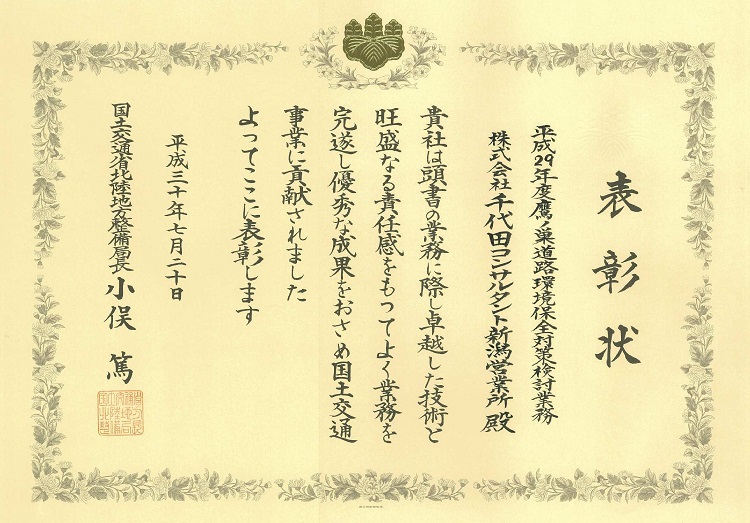 表彰状
平成29年度鷹ノ巣道路環境保全対策検討業務
株式会社千代田コンサルタント新潟営業所殿
貴社は頭書の業務に際し卓越した技術と
旺盛なる責任感をもつてよく業務を
完遂し優秀な成果をおさめ国土交通
事業に貢献されました
よってここに表彰します
平成三十年七月二十日
国土交通省北陸地方整備局長 小俣篤